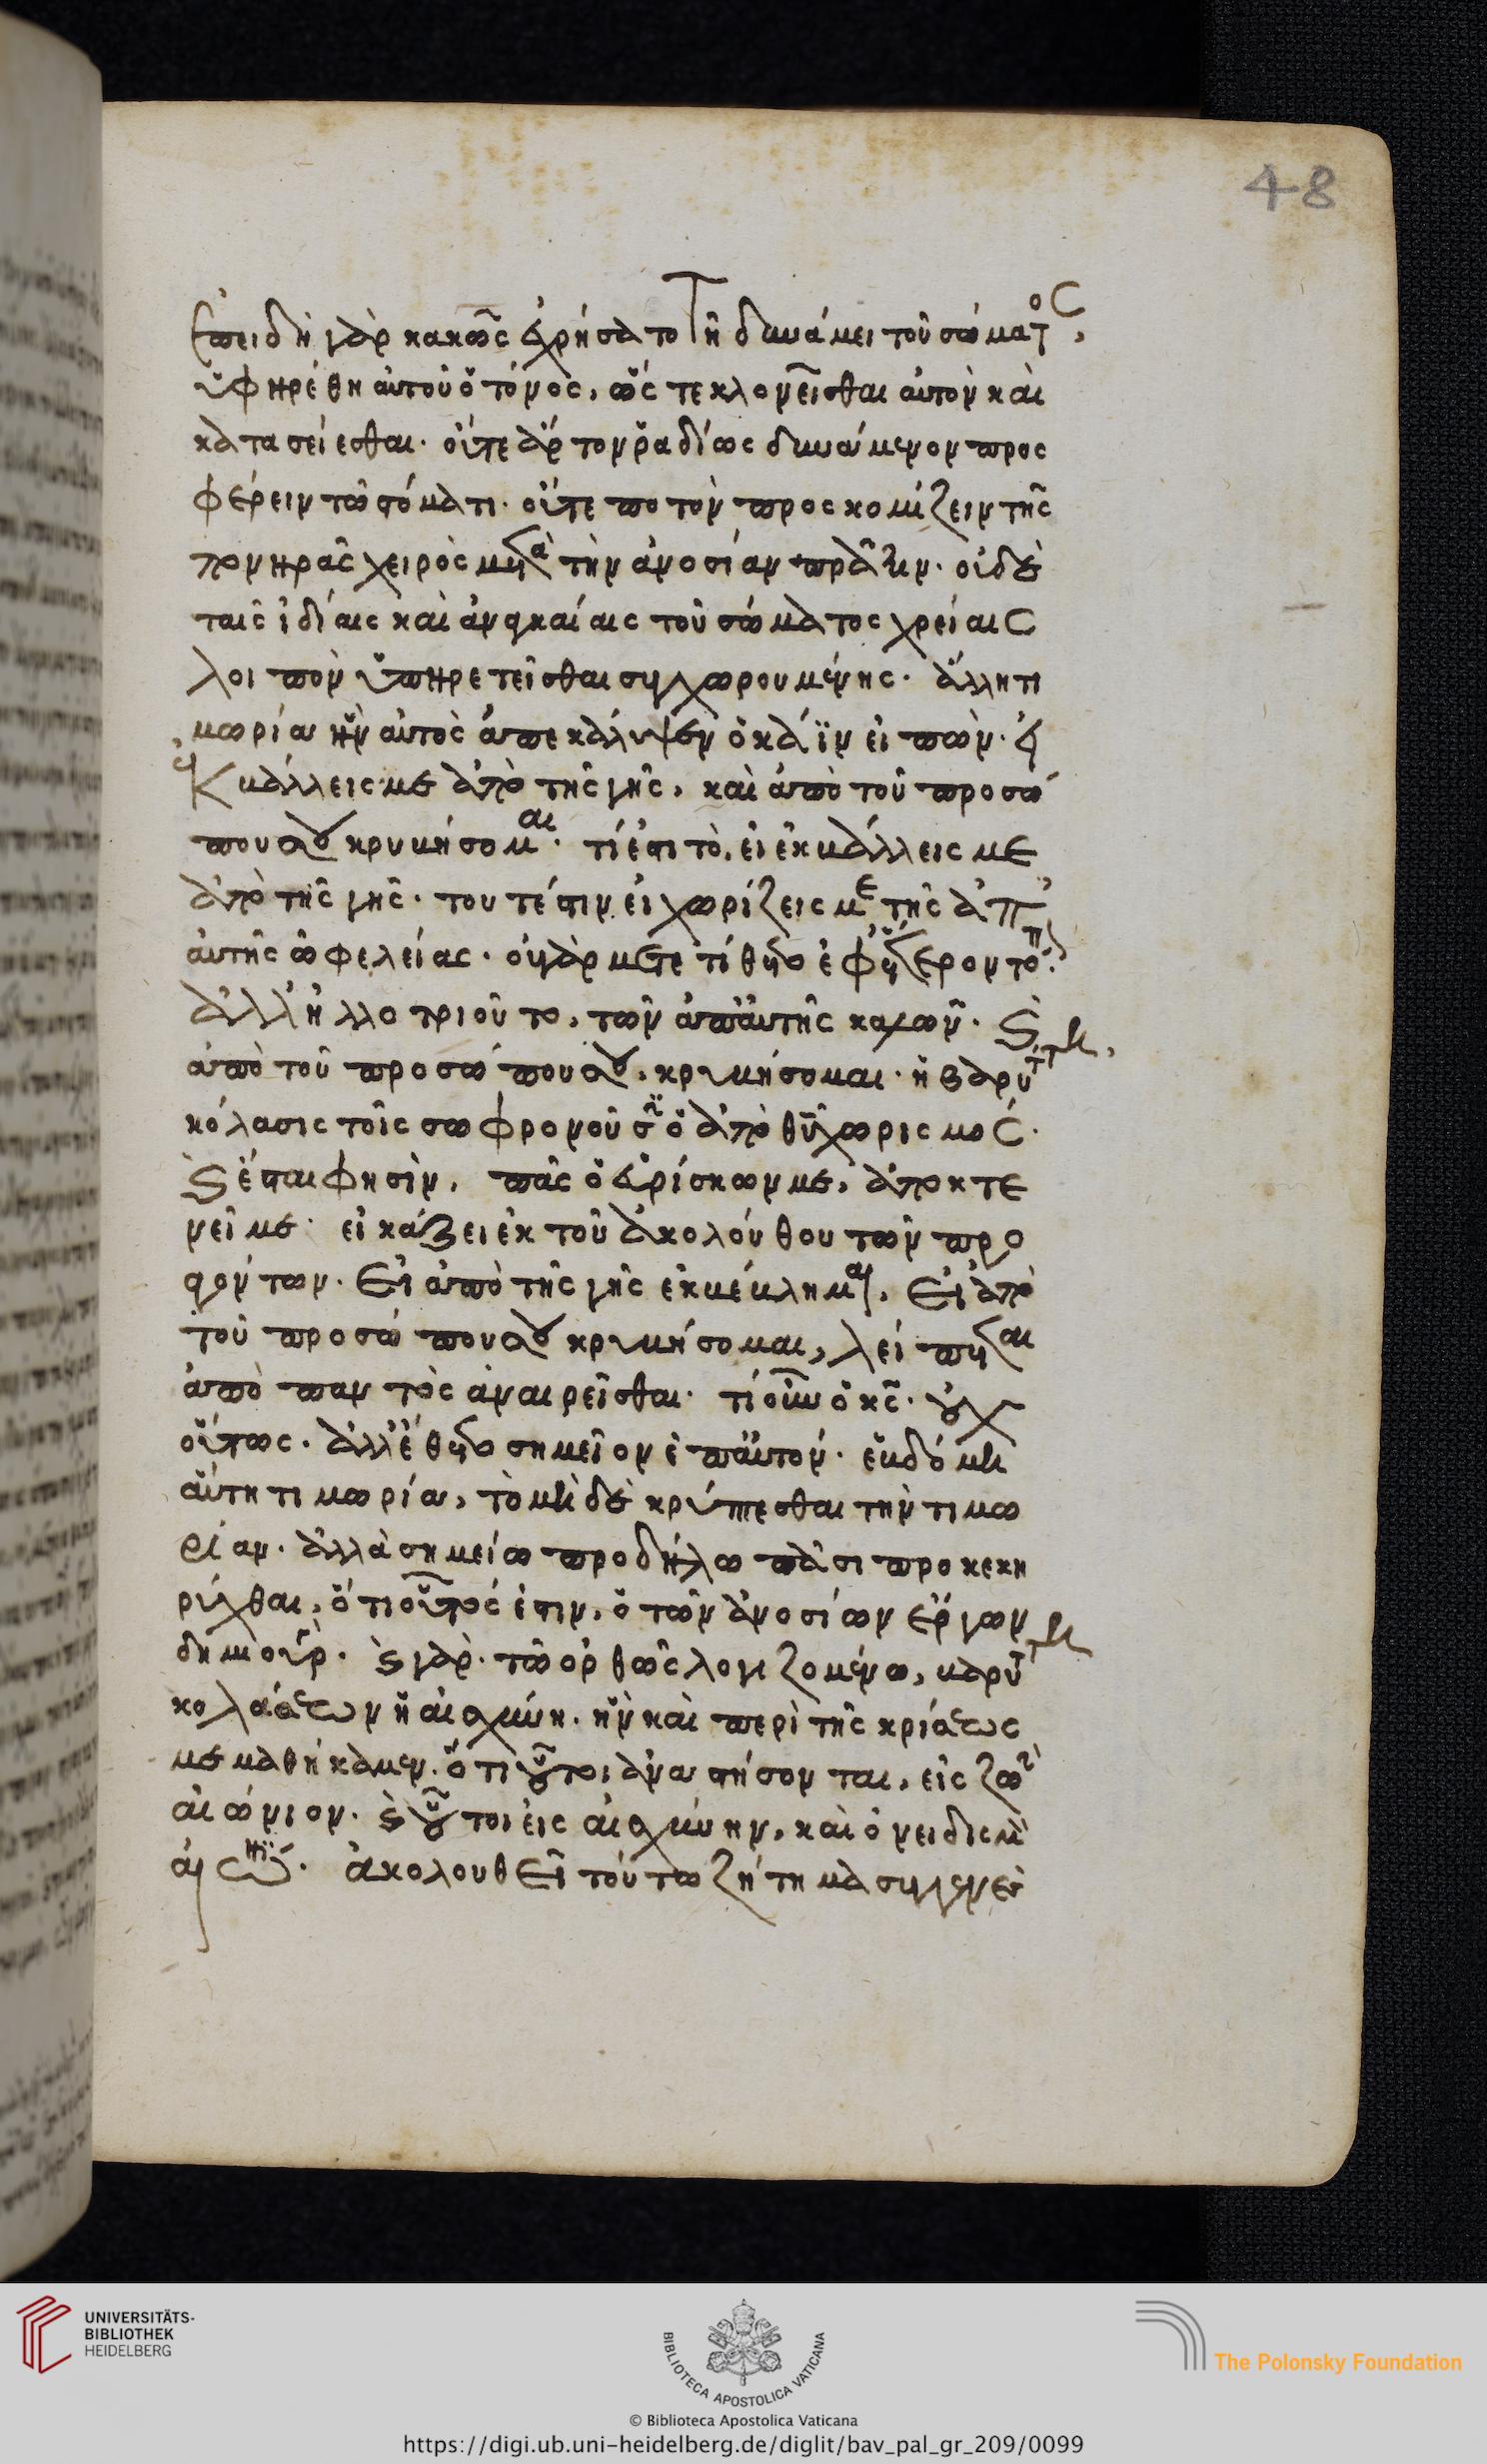 48
ἐπειδὴ γὰρ κακῶς ἐχρήσατο τῆ δυνάμει τοῦ σώματος,
ὑφηρέθη αὐτοῦ ὁ τόνος, ὥς τε κλονεῖσθαι αὐτὸν καὶ
κατασείεσθαι. οὔτε ἄρτον ῥαδίως δυνάμενον προς
φέρειν τῶ στόματι. οὔτε ποτὸν προσκομίζειν τῆς
πονηρᾶς χειρὸς μετὰ τὴν ἀνοσίαν πρᾶξιν. οὐδὲ
ταῖς ἰδίαις καὶ ἀναγκαίαις τοῦ σώματος χρείαις
λοιπὸν ὑπηρετεῖσθαι συγχωρουμένης. ἄλλη τι
μωρία ἣν αὐτὸς ἀπεκάλυψεν ὁ κάϊν εἰπών. εἰ
ἐκβάλλεις με ἀπὸ τῆς γῆς, καὶ ἀπὸ τοῦ προσώ
που σου κρυβήσομαι. τί ἐστι τὸ, εἰ ἐκβάλλεις με
ἀπὸ τῆς γῆς. τουτέστιν εἰ χωρίζεις με τῆς ἀπ'
αὐτῆς ὠφελείας. οὐ γὰρ μετετίθετο ἐφ' ἕτερον τόπον.
ἀλλ' ἠλλοτριοῦτο, τῶν ἀπ' αὐτῆς καλῶν. καὶ
ἀπὸ τοῦ προσώπου σου, κρυβήσομαι. ἡ βαρυτάτη
κόλασις τοῖς σωφρονοῦσιν ὁ ἀπὸ θυ χωρισμός.
καὶ ἔσται φησὶν, πᾶς ὁ εὑρίσκων με, ἀποκτε
νεῖ με. εἰκάζει ἐκ τοῦ ἀκολούθου τῶν προ
αγόντων. εἰ ἀπὸ τῆς γῆς ἐκβέβλημαι, εἰ ἀπὸ
τοῦ προσώπου σου κρυβήσομαι, λείπεται
ἀπὸ παντὸς ἀναιρεῖσθαι. τί οὖν ὁ κς. οὐχ
οὕτως. ἀλλ' ἔθετο σημεῖον ἐπ' αὐτόν. ἑβδόμη
αὕτη τιμωρία, τὸ μηδὲ κρύπτεσθαι τὴν τιμω
ρίαν. ἀλλὰ σημείω προδήλω πᾶσι προκεκη
ρύχθαι, ὅτι οὗτός ἐστιν, ὁ τῶν ἀνοσίων ἔργων
δημιουργός. καὶ γὰρ τῶ ὀρθῶς λογιζομένω, βαρυτάτη
κολάσεων ἡ αἰσχύνη. ἣν καὶ περὶ τῆς κρίσεως
μεμαθήκαμεν. ὅτι οὗτοι ἀναστήσονται, εἰς ζωὴν
αἰώνιον. καὶ οὗτοι εἰς αἰσχύνην, καὶ ὀνειδισμὸν
αἰώνιον. ἀκολουθεῖ τούτω ζήτημα συγγενὲς
UNIVERSITÄTS-
BIBLIOTHEK
HEIDELBERG
BIBLIOTECA APOSTOLICA VATICANA
© Biblioteca Apostolica Vaticana
The Polonsky Foundation
https://digi.ub.uni-heidelberg.de/diglit/bav_pal_gr_209/0099